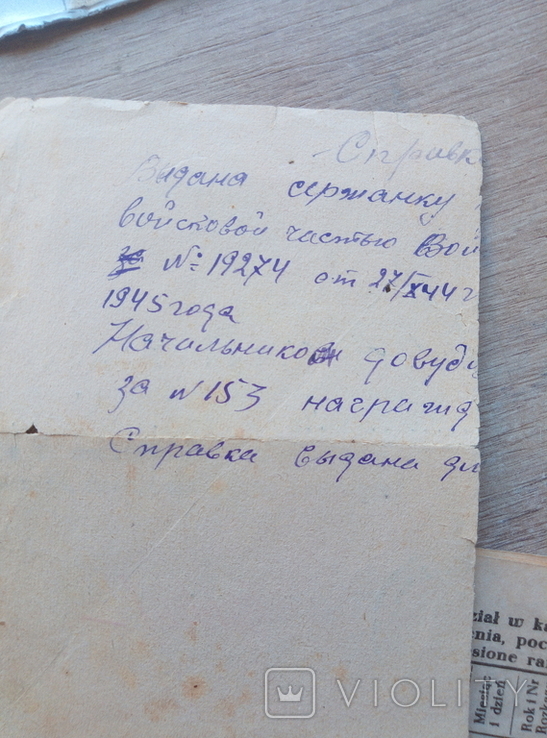 - Справк
Выдана сержанку
войсковой частью Вой
№ 19274 от 27/X 44 г
1945 года
Начальником довуд
за № 153 награжд
Справка выдана дл
ział w ka
enia, poc
sione ra
Miesiąc
i dzień
Rok i Nr
Rozka
VIOLITY